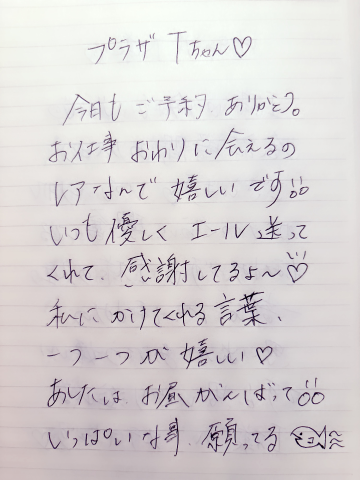 プラザ Tちゃん♡
今日も ご予約 ありがとう。
お仕事 おわりに 会えるの
レアなんで 嬉しいです
いつも 優しく エール 送って
くれて、感謝してるよ〜♡
私に かけてくれる 言葉、
一つ一つが 嬉しい♡
あしたは お昼 がんばって
いっぱいな事 願ってる